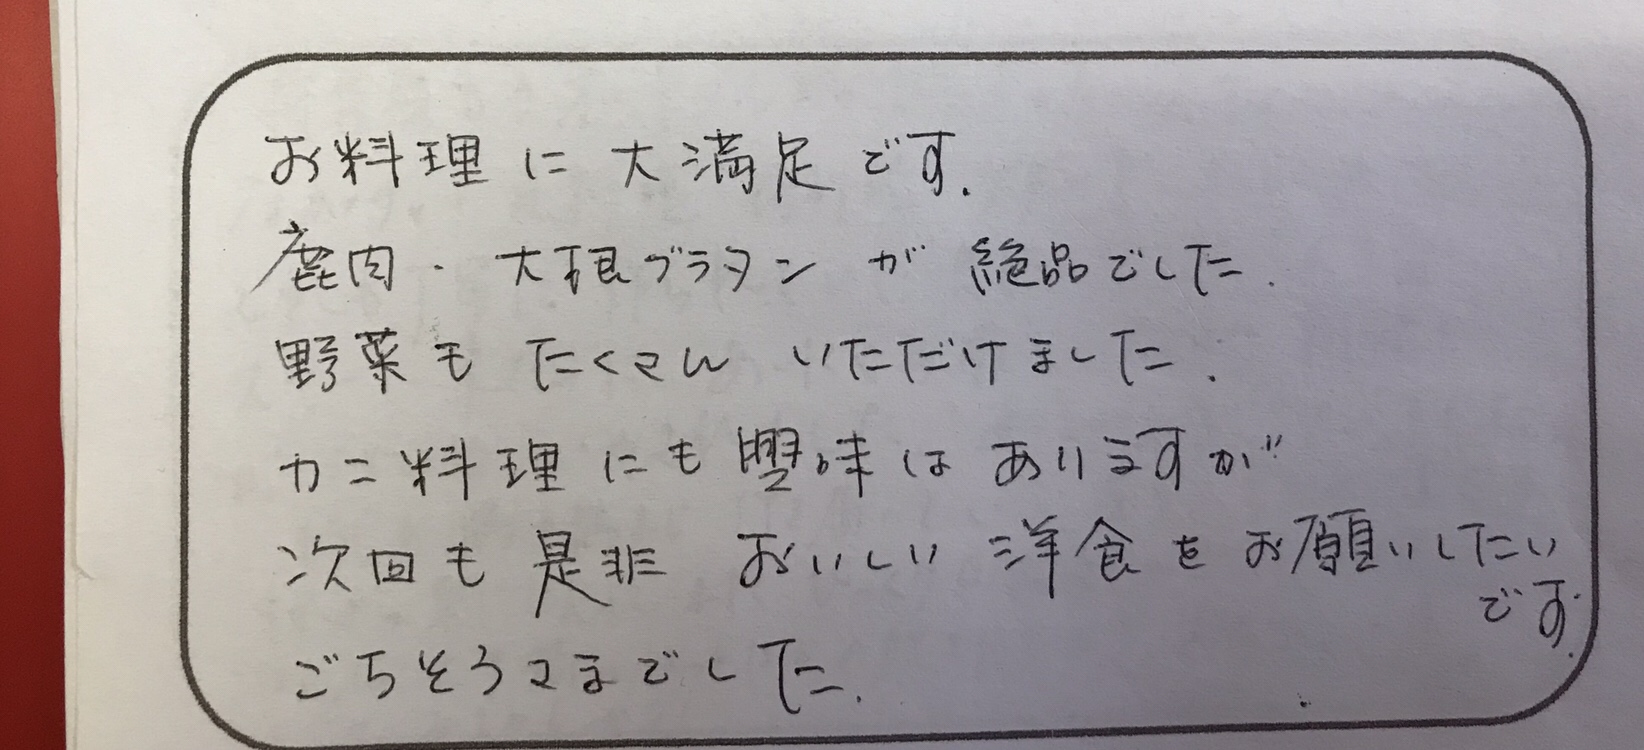 お料理に大満足です.
鹿肉・大根グラタンが絶品でした.
野菜もたくさんいただけました.
カニ料理にも興味はありますが
次回も是非おいしい洋食をお願いしたい
です.
ごちそうさまでした.